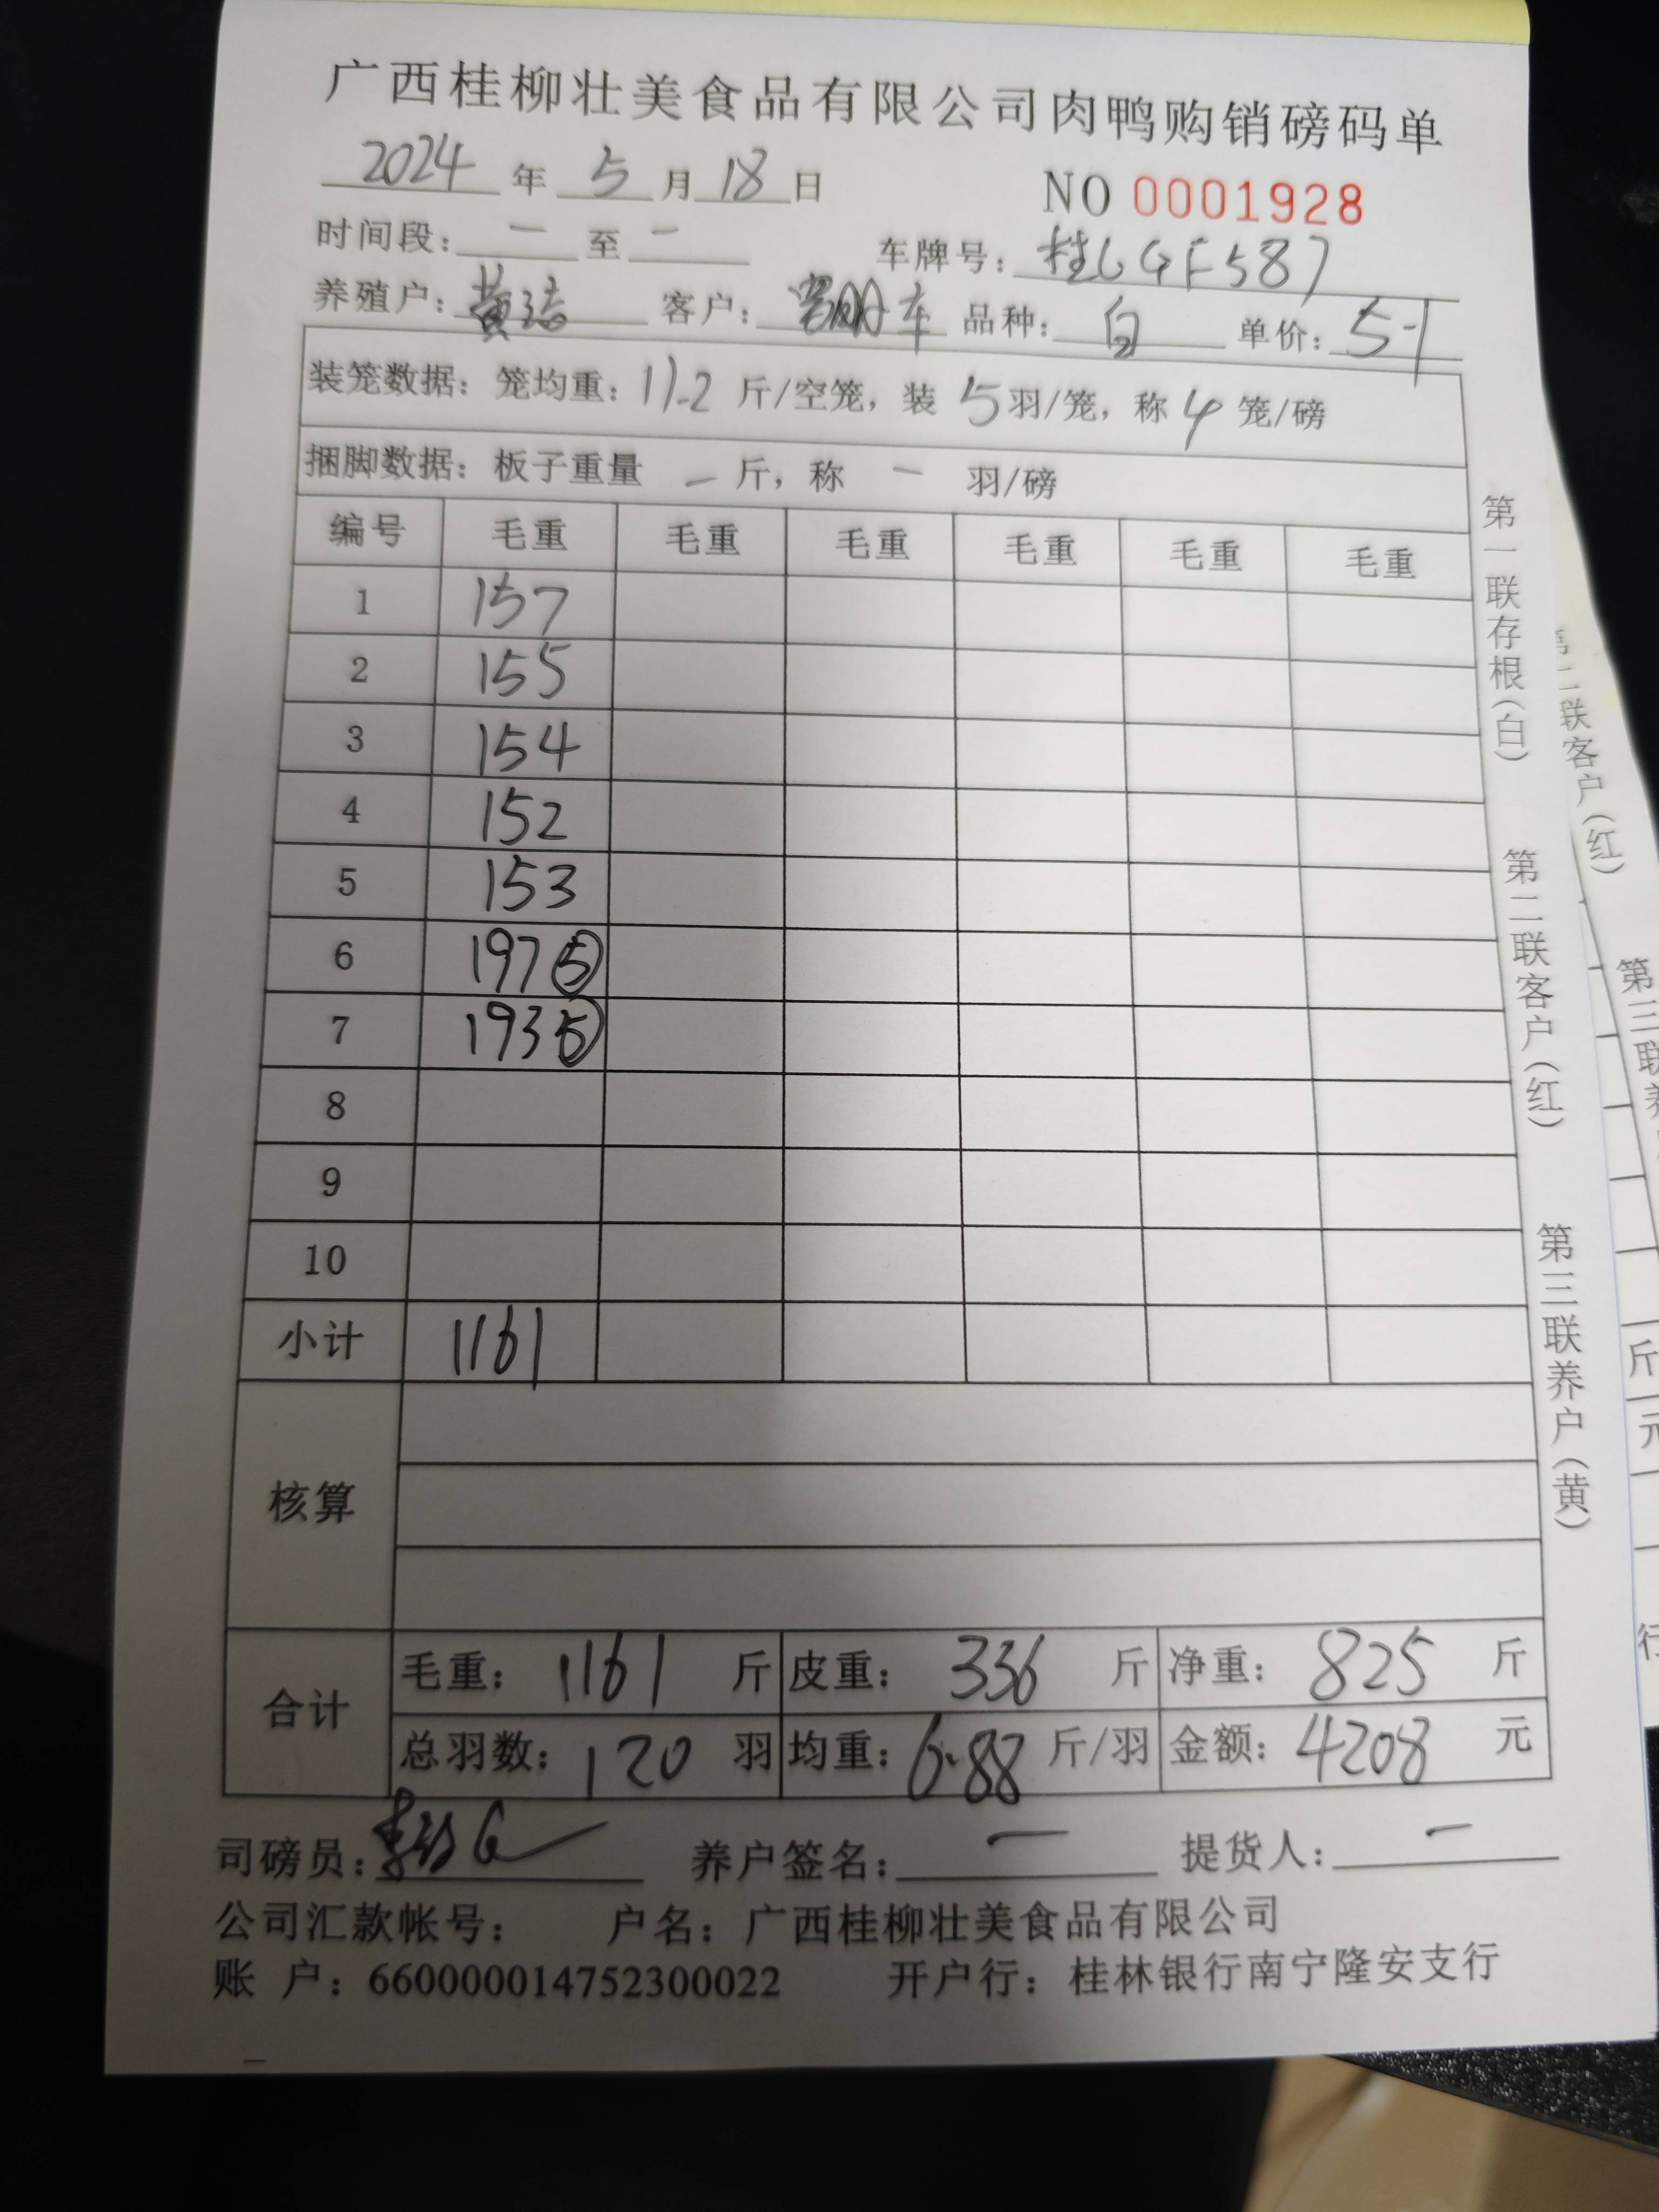 广西桂柳壮美食品有限公司肉鸭购销磅码单
2024 年 5 月 18 日 NO 0001928
时间段: 一 至 一 车牌号: 桂LGF587
养殖户: 黄志 客户: 明车 品种: 白 单价: 5-1
装笼数据: 笼均重: 11-2 斤/空笼, 装 5 羽/笼, 称 4 笼/磅
捆脚数据: 板子重量 一 斤, 称 一 羽/磅
编号 毛重 毛重 毛重 毛重 毛重 毛重
1 157
2 155
3 154
4 152
5 153
6 197 ⑤
7 193 ⑤
8
9
10
小计 1161
核算
合计
毛重: 1161 斤 皮重: 336 斤 净重: 825 斤
总羽数: 120 羽 均重: 6.88 斤/羽 金额: 4208 元
司磅员: 养户签名: 一 提货人: 一
公司汇款帐号: 户名: 广西桂柳壮美食品有限公司
账 户: 660000014752300022 开户行: 桂林银行南宁隆安支行
第一联存根(白) 第二联客户(红) 第三联养户(黄)
第二联客户(红)
第三联养
斤
元
行